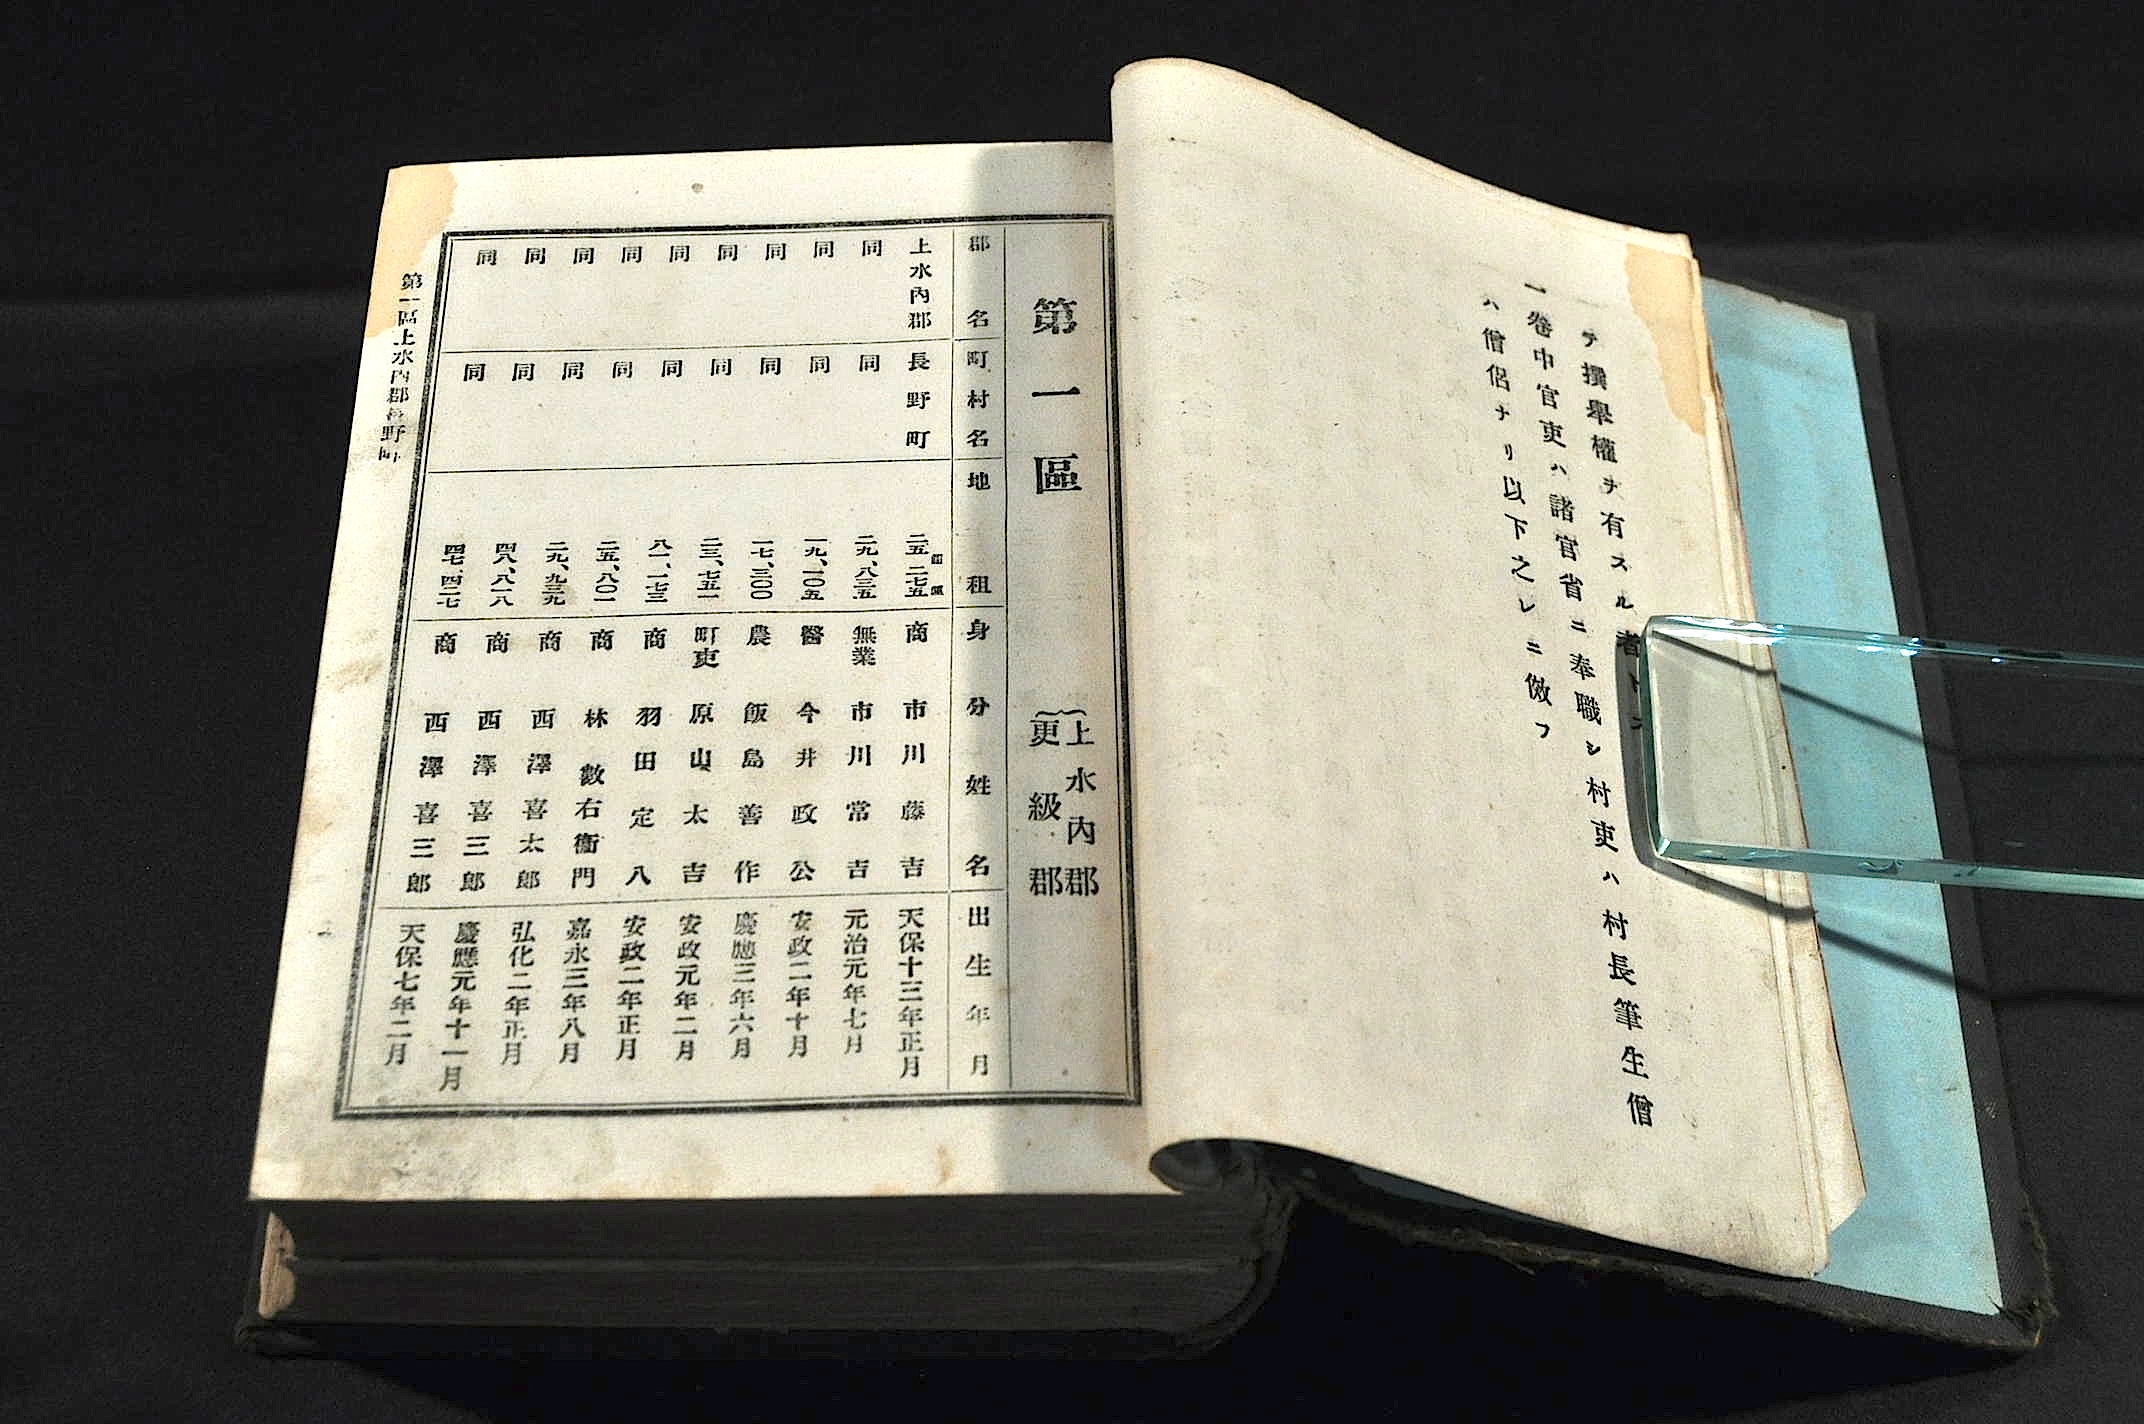 テ撰擧權ヲ有スル者トス
一卷中官吏ハ諸官省ニ奉職シ村吏ハ村長筆生僧
ハ僧侶ナリ以下之レニ倣フ
第一區
上水內郡
更級郡
郡名 町村名 地租 身分 姓名 出生年月
上水內郡 長野町 二五、二七五 商 市川藤吉 天保十三年正月
同 同 二九、八三五 無業 市川常吉 元治元年七月
同 同 一九、一〇五 醫 今井政公 安政二年十月
同 同 一七、三〇〇 農 飯島善作 慶應三年六月
同 同 二三、七五一 町吏 原山太吉 安政元年二月
同 同 八一、一七三 商 羽田定八 安政二年正月
同 同 二五、八〇一 商 林數右衞門 嘉永三年八月
同 同 二九、九三九 商 西澤喜太郎 弘化二年正月
同 同 四八、八一八 商 西澤喜三郎 慶應元年十一月
同 同 四七、四二七 商 西澤喜三郎 天保七年二月
第一區上水內郡長野町